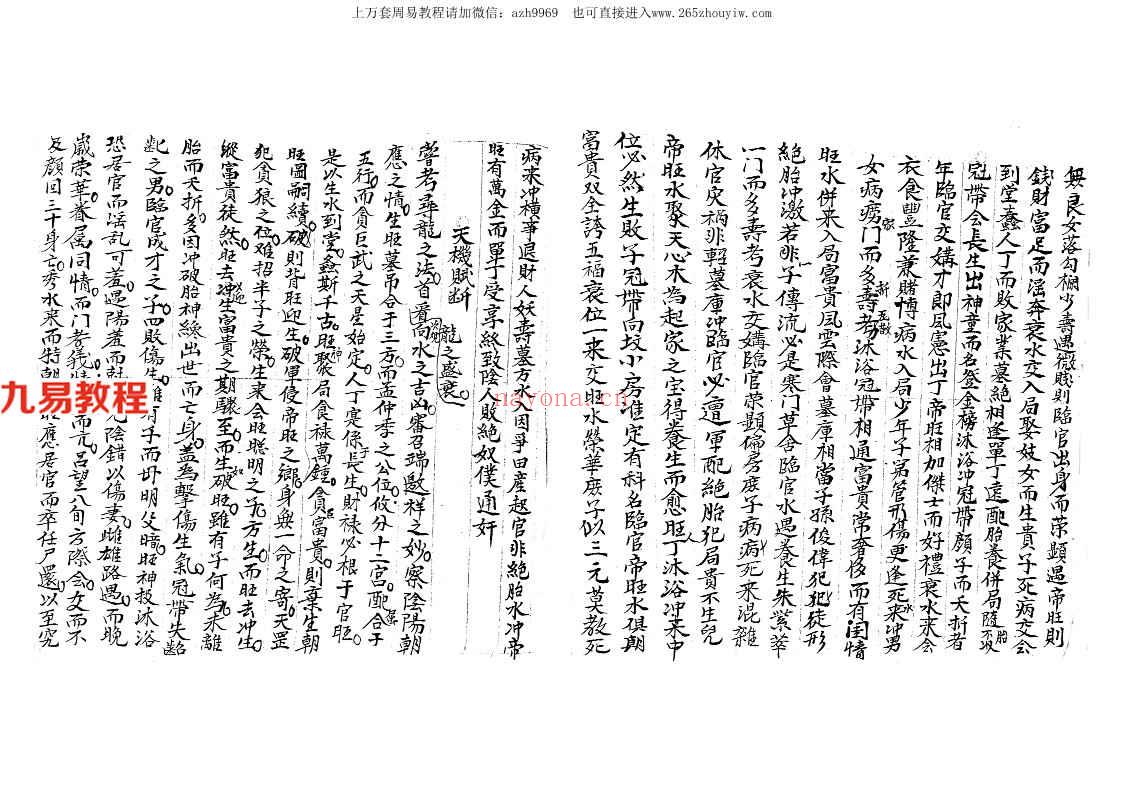 上万套周易教程请加微信：azh9969 也可直接进入www.265zhouyiw.com
無良女落勾欄少壽遇微賤則臨官出身而荣顕遇帝旺則
錢財富足而淫奔衰水交入局娶妓女而生貴子死病交会
到堂蠢人丁而敗家業墓絶相逢單丁遠配胎養併局隨胎不攻
冠帶会長生出神童而名登金榜沐浴冲冠帶顔子而夭折者
年臨官交媾才即風憲出丁帝旺相加傑士而好禮衰水來会
衣食豐隆兼賭博病水入局少年子寡管形傷更逢死来冲男
女病癆门而多壽若沐浴冠帶相通富貴常奢侈而有闺情
旺水併来入局富貴風雲際會墓庫相當子孫俊偉犯犯徒形
絶胎冲激若非子傳流必是寒门草舍臨官水遇養生朱紫萃
一门而多壽考衰水交媾臨官荣顕偏房庶子病病死来混雜
休官灾禍非輕墓庫冲臨官必遭軍配絶胎犯局貴不生兒
帝旺水聚天心木為起家之宝得養生而愈旺丁沐浴冲来中
位必然生敗子冠帶向坟小房准定有科名臨官帝旺水俱朝
富貴双全誇五福衰位一来交旺水榮華庶子似三元莫教死
病来冲横事退財人妖壽墓方水交因爭田產起官非絶胎水冲帝
旺有萬金而單丁受享終致陰人敗絶奴僕通奸
天機賦斷
嘗考尋龍之法首看龍之盛衰向水之吉凶審召瑞邀祥之妙察陰陽朝
應之情生旺墓吊合于三方而孟仲季之公位攸分十二宮配合于
五行而貪巨武之天星始定人丁寔係于長生財禄必根于官旺
是以生水到堂螽斯千古旺聚局食禄萬鍾貪富貴則棄生朝
旺圖嗣續破則背旺迎生破軍侵帝旺之鄉身無一命之寄天罡
犯貪狼之位难招半子之榮生来会旺聰明之子方生而旺去冲生
縱富貴徒然旺去冲生富貴之期驟至而生破旺雖有子何為未離
胎而夭折多因冲破胎神纔出世而亡身盖為擊傷生氣冠帶失
之男臨官成才之子四敗傷生雖有子而母明父暗旺神投沐浴
恐居官而淫乱可羞遇陽羞而陰錯以傷妻雌雄路遇而晚
歲荣華眷属同情而门而亢呂望八旬方際会女而不
反顔回三十身亡秀水来而特朝旺應居官而卒任尸還以至究
九易教程
nayona.cn